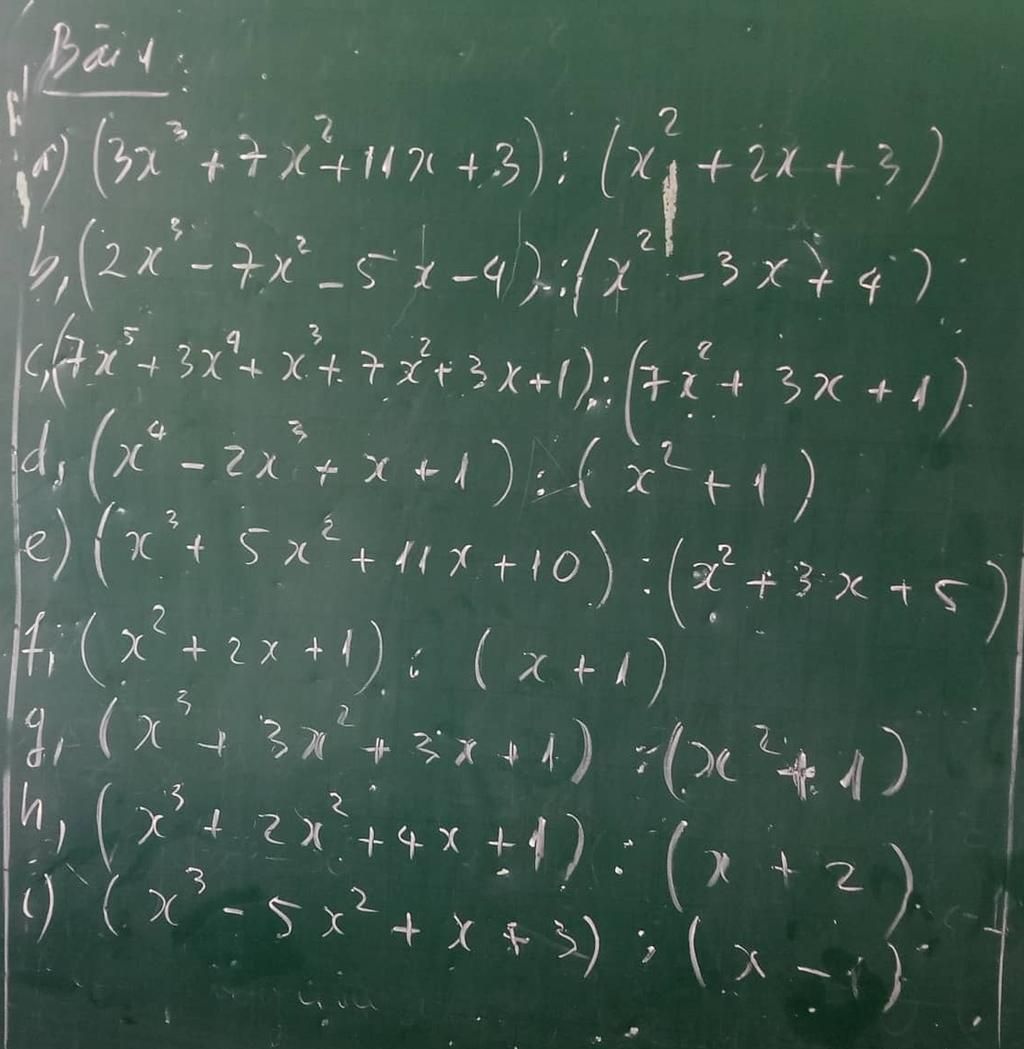 Bài 1:
a) (3x³ + 7x² + 11x + 3) : (x² + 2x + 3)
b, (2x³ - 7x² - 5x - 4) : (x² - 3x + 4)
c, (7x⁵ + 3x⁴ + x³ + 7x² + 3x + 1) : (7x² + 3x + 1)
d, (x⁴ - 2x³ + x + 1) : (x² + 1)
e) (x³ + 5x² + 11x + 10) : (x² + 3x + 5)
f, (x² + 2x + 1) : (x + 1)
g, (x³ + 3x² + 3x + 1) : (x² + 1)
h, (x³ + 2x² + 4x + 1) : (x + 2)
i) (x³ - 5x² + x + 3) : (x - 1)